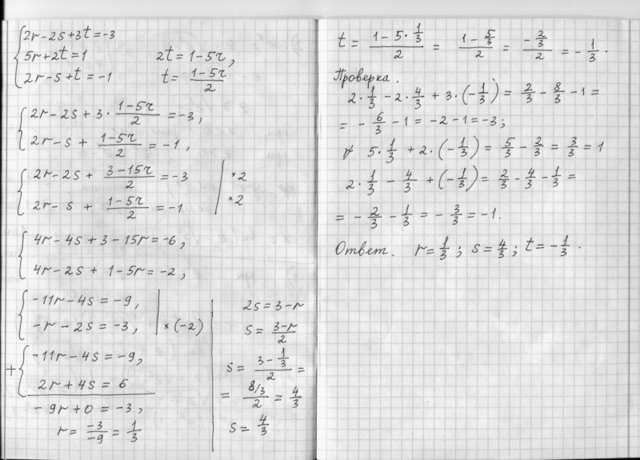 {2r-2s+3t=-3
5r+2t=1      2t=1-5r,
2r-s+t=-1      t=(1-5r)/2
{2r-2s+3·(1-5r)/2=-3,
2r-s+(1-5r)/2=-1,
{2r-2s+(3-15r)/2=-3 | *2
2r-s+(1-5r)/2=-1 | *2
{4r-4s+3-15r=-6,
4r-2s+1-5r=-2,
{-11r-4s=-9,
-r-2s=-3, | *(-2)
+{-11r-4s=-9,
2r+4s=6
-9r+0=-3,
r=-3/-9=1/3
2s=3-r
s=(3-r)/2
s=(3-1/3)/2=
=(8/3)/2=4/3
s=4/3
t=(1-5·1/3)/2=(1-5/3)/2=(-2/3)/2=-1/3.
Проверка.
2·1/3-2·4/3+3·(-1/3)=2/3-8/3-1=
=-6/3-1=-2-1=-3;
5·1/3+2·(-1/3)=5/3-2/3=3/3=1
2·1/3-4/3+(-1/3)=2/3-4/3-1/3=
=-2/3-1/3=-3/3=-1.
Ответ. r=1/3; s=4/3; t=-1/3.